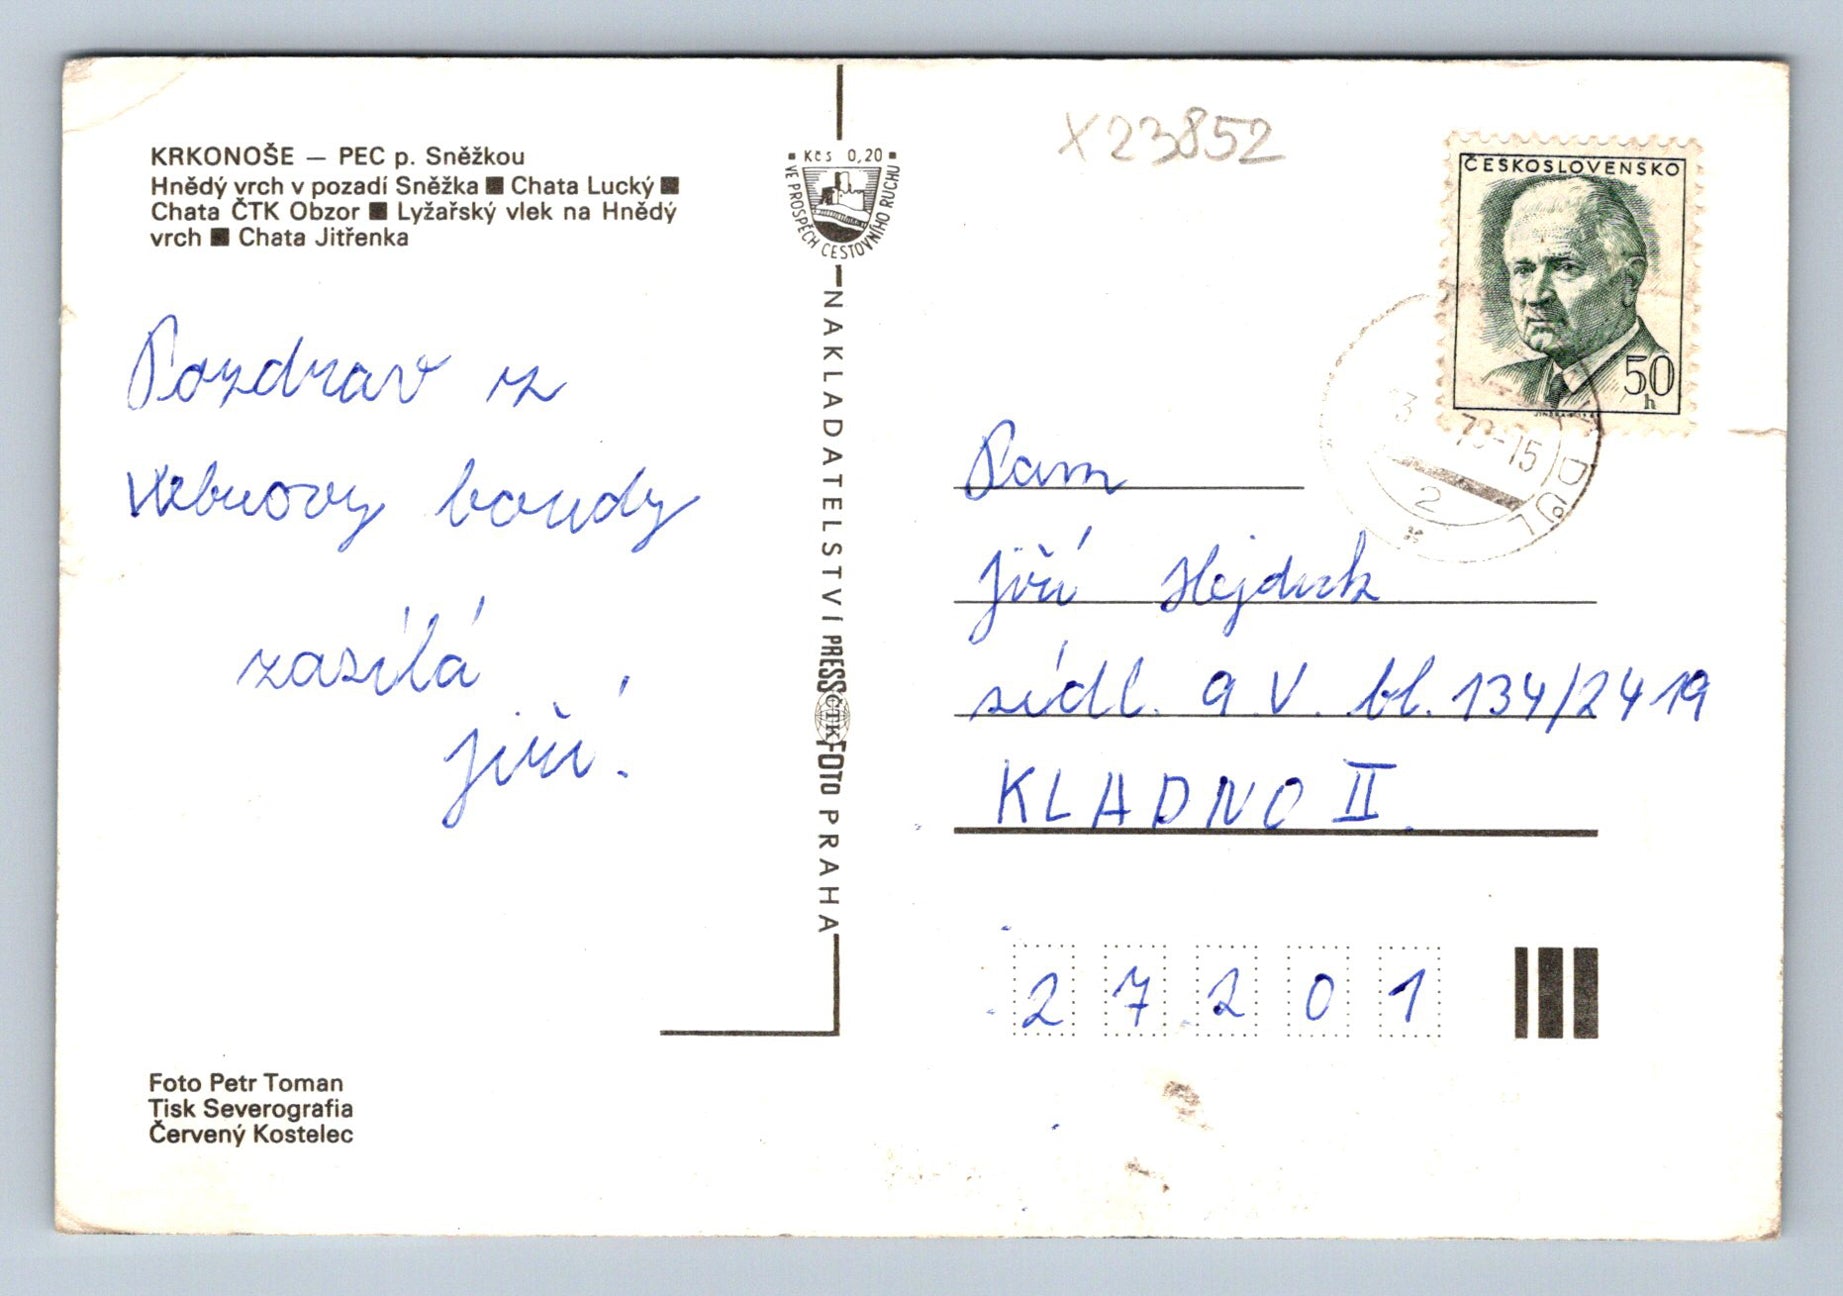 KRKONOŠE — PEC p. Sněžkou
Hnědý vrch v pozadí Sněžka ■ Chata Lucký ■
Chata ČTK Obzor ■ Lyžařský vlek na Hnědý
vrch ■ Chata Jitřenka
Pozdrav z
boudy
zasílá
Jiří.
Foto Petr Toman
Tisk Severografia
Červený Kostelec
Kčs 0,20
VE PROSPĚCH CESTOVNÍHO RUCHU
NAKLADATELSTVÍ PRESSFOTO PRAHA
ČTK
X23852
ČESKOSLOVENSKO
50
h
-15
2
Pam
Jiří Hejduk
sídl. 9 V. bl. 134/2419
KLADNO II.
27201